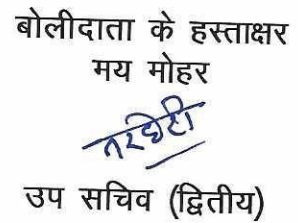 बोलीदाता के हस्ताक्षर
मय मोहर
उप सचिव (द्वितीय)